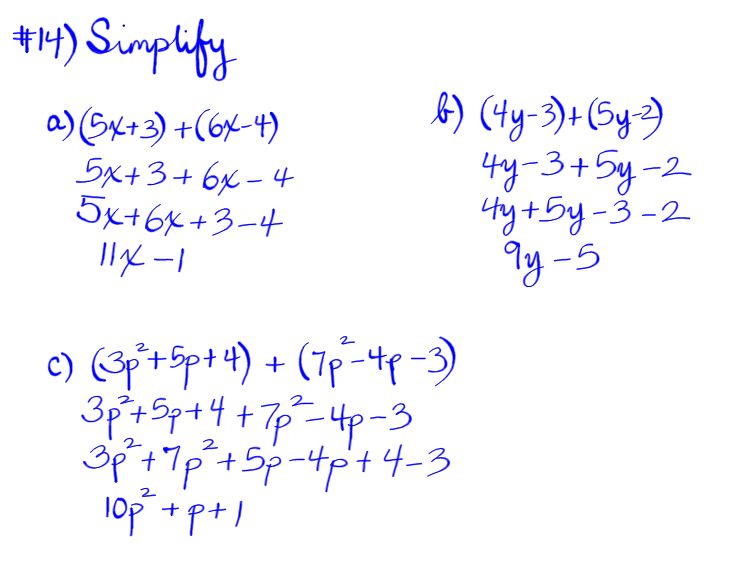 #14) Simplify
a) (5x+3) + (6x-4)
5x+3+6x-4
5x+6x+3-4
11x-1
b) (4y-3)+(5y-2)
4y-3+5y-2
4y+5y-3-2
9y-5
c) (3p²+5p+4) + (7p²-4p-3)
3p²+5p+4+7p²-4p-3
3p²+7p²+5p-4p+4-3
10p²+p+1